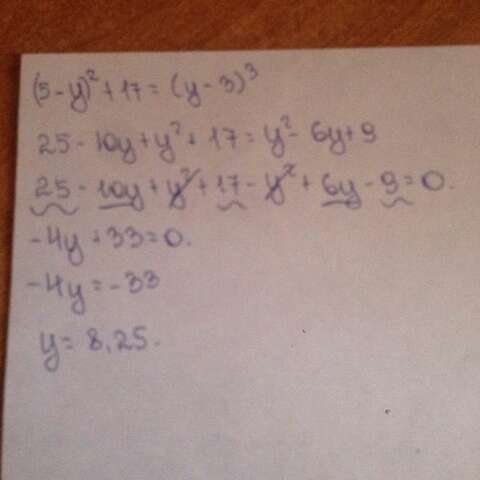 (5-y)²+17=(y-3)³
25-10y+y²+17=y²-6y+9
25-10y+y²+17-y²+6y-9=0.
-4y+33=0.
-4y=-33
y=8,25.